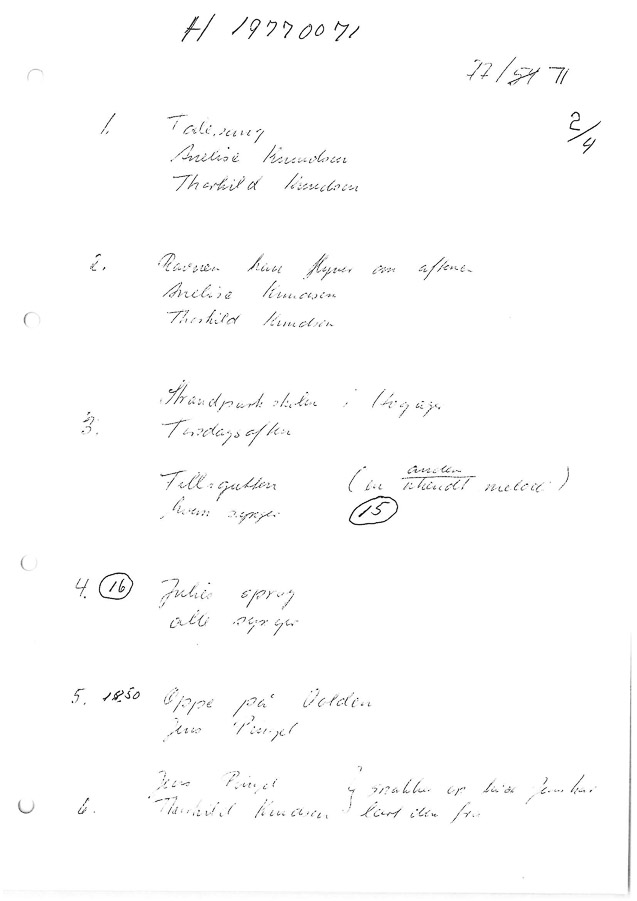 H 19770071
77/ 71
2/4
1. Talesang
Anelise Knudsen
Thorkild Knudsen
2. Ravnen han flyver om aftenen
Anelise Knudsen
Thorkild Knudsen
Strandparkskolen i
3. Tirsdagsaften
(en anden melodi)
synger 15
4. 16 Julies
alle synger
5. 1850 Oppe på Volden
Jens Pingel
Jens Pingel } snakker om hvor Jens har
6. Thorkild Knudsen } lært den fra